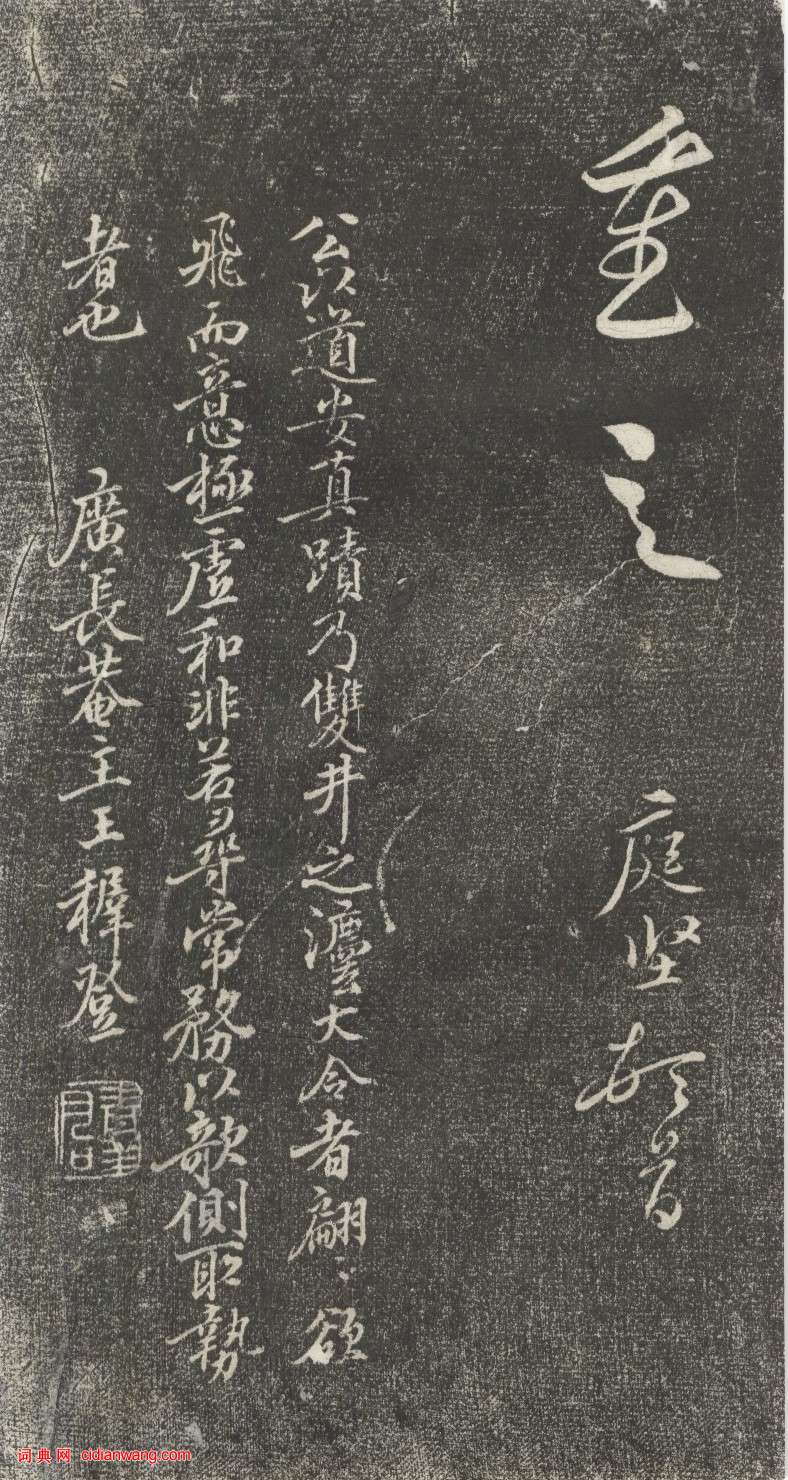 重之 庭坚頓首
公以道安真蹟乃雙井之灋大令者翩〻欲
飛而意極虛和非若尋常務以欹側取勢
者也 廣長菴主王穉登
词典网 cidianwang.com